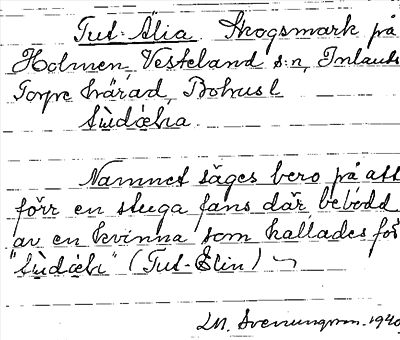 Tut-Älia Skogsmark på
Holmen, Vesteland s:n, Inlands
Torpe härad, Bohusl
Namnet säges bero på att
förr en stuga fans där bebodd
av en kvinna som kallades för
(Tut-Elin)
1940